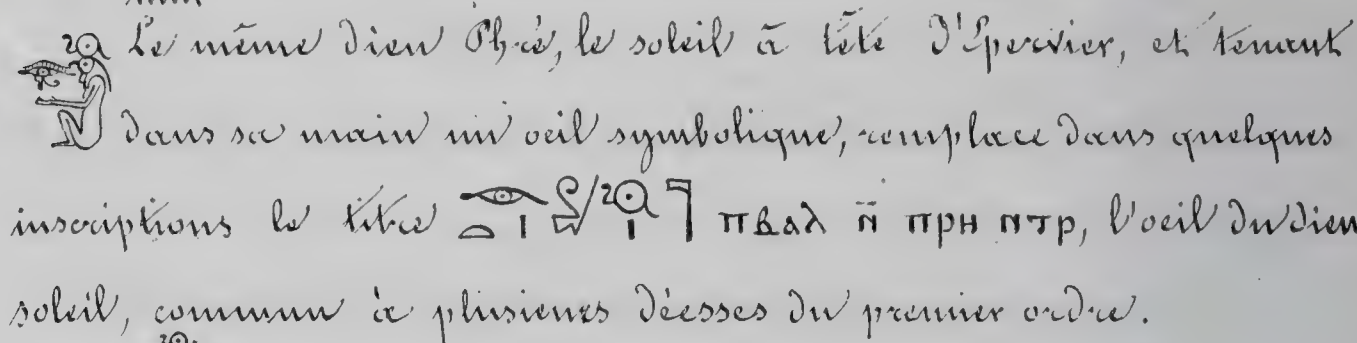 Le même dieu Phré, le soleil à tête d'Epervier, et tenant
dans sa main un oeil symbolique, remplace dans quelques
inscriptions le titre 𓁹𓏏𓏤𓋔𓇳𓏤𓊹 ⲡⲃⲁⲗ ⲛ̄ ⲡⲣⲏ ⲛⲧⲣ, l'oeil du dieu
soleil, commun à plusieurs déesses du premier ordre.